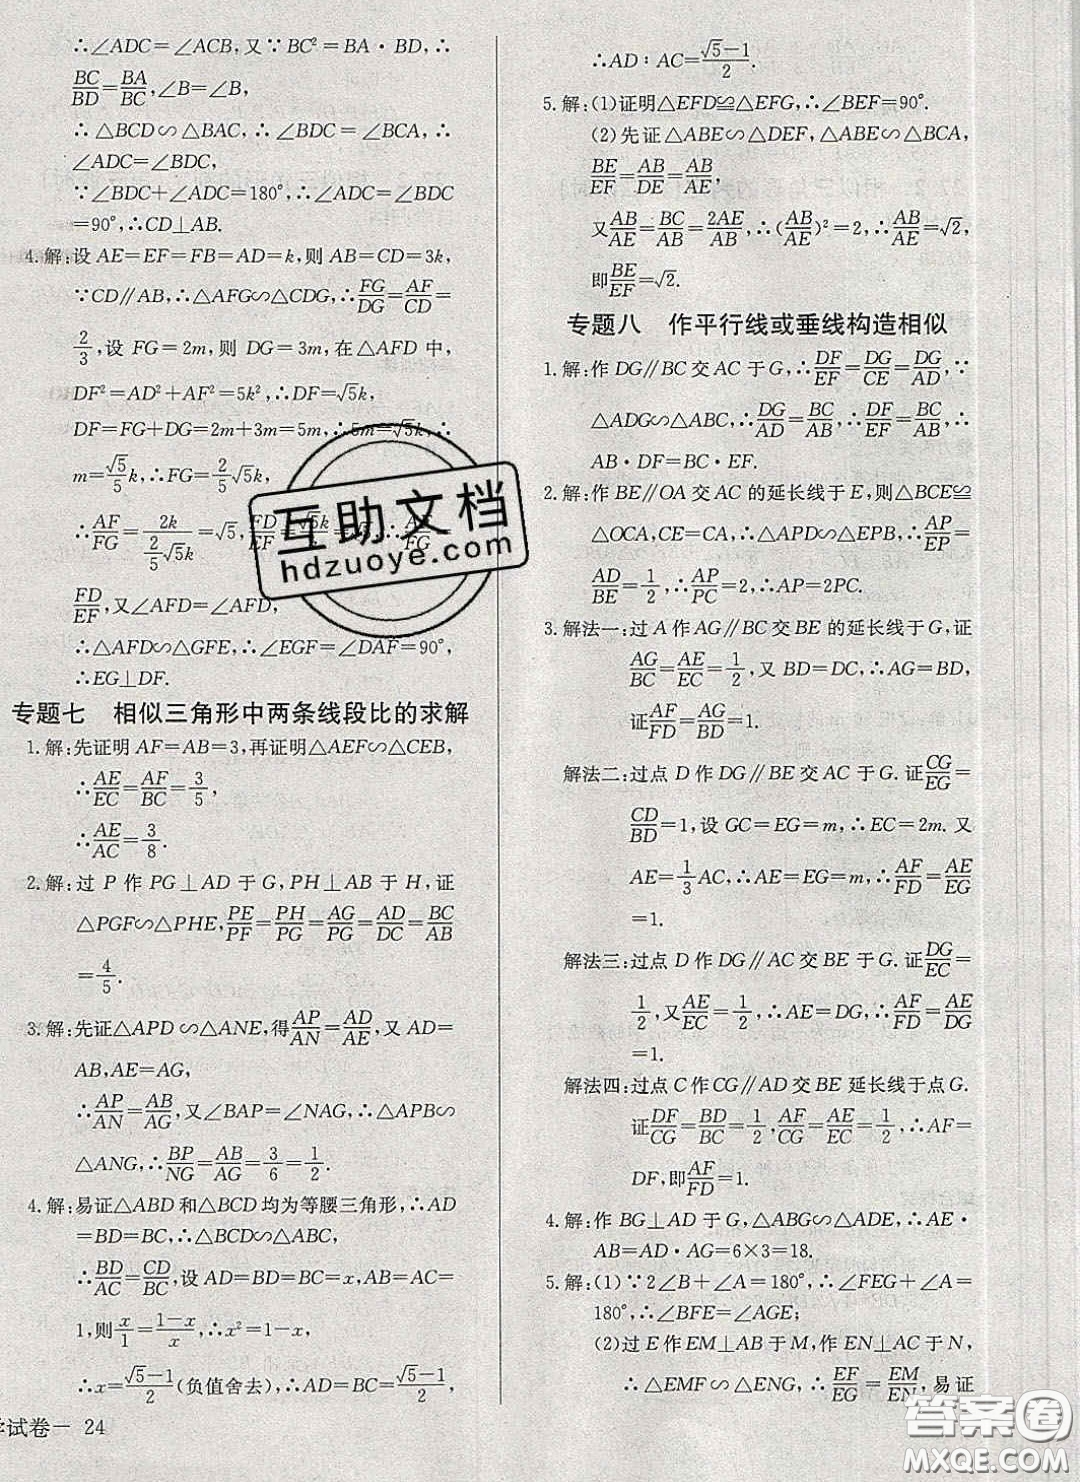 ∴∠ADC=∠ACB,又∵BC²=BA·BD,∴
BC/BD=BA/BC,∠B=∠B,
∴△BCD∽△BAC,∴∠BDC=∠BCA,∴
∠ADC=∠BDC,
∵∠BDC+∠ADC=180°,∴∠ADC=∠BDC
=90°,∴CD⊥AB.
4.解:设AE=EF=FB=AD=k,则AB=CD=3k,
∵CD∥AB,∴△AFG∽△CDG,∴FG/DG=AF/CD=
2/3,设FG=2m,则DG=3m,在△AFD中,
DF²=AD²+AF²=5k²,∴DF=√5k,
DF=FG+DG=2m+3m=5m,∴5m=√5k,∴
m=√5/5k,∴FG=2/5√5k,
∴AF/FG=2k/(2/5√5k)=√5,FD/EF=√5k/k=√5,∴AF/FG=
FD/EF,又∠AFD=∠AFD,
∴△AFD∽△GFE,∴∠EGF=∠DAF=90°,
∴EG⊥DF.
专题七 相似三角形中两条线段比的求解
1.解:先证明AF=AB=3,再证明△AEF∽△CEB,
∴AE/EC=AF/BC=3/5,
∴AE/AC=3/8.
2.解:过P作PG⊥AD于G,PH⊥AB于H,证
△PGF∽△PHE,PE/PF=PH/PG=AG/PG=AD/DC=BC/AB
=4/5.
3.解:先证△APD∽△ANE,得AP/AN=AD/AE,又AD=
AB,AE=AG,
∴AP/AN=AB/AG,又∠BAP=∠NAG,∴△APB∽
△ANG,∴BP/NG=AB/AG=3/6=1/2.
4.解:易证△ABD和△BCD均为等腰三角形,∴AD
=BD=BC,∴△BDC∽△ABC,
∴BD/AC=CD/BC,设AD=BD=BC=x,AB=AC=
1,则x/1=1-x/x,∴x²=1-x,
∴x=√5-1/2(负值舍去),∴AD=BC=√5-1/2,
试卷— 24
∴AD:AC=√5-1/2.
5.解:(1)证明△EFD≌△EFG,∴∠BEF=90°.
(2)先证△ABE∽△DEF,△ABE∽△BCA,
BE/EF=AB/DE=AB/AE,
又AB/AE=BC/AB=2AE/AB,∴(AB/AE)²=2,∴AB/AE=√2,
即BE/EF=√2.
专题八 作平行线或垂线构造相似
1.解:作DG∥BC交AC于G,∴DF/EF=DG/CE=DG/AD,∵
△ADG∽△ABC,∴DG/AD=BC/AB,∴DF/EF=BC/AB,∴
AB·DF=BC·EF.
2.解:作BE∥OA交AC的延长线于E,则△BCE≌
△OCA,CE=CA,∴△APD∽△EPB,∴AP/EP=
AD/BE=1/2,∴AP/PC=2,∴AP=2PC.
3.解法一:过A作AG∥BC交BE的延长线于G,证
AG/BC=AE/EC=1/2,又BD=DC,∴AG=BD,
∴AF/FD=AG/BD=1.
解法二:过点D作DG∥BE交AC于G.证CG/EG=
CD/BD=1,设GC=EG=m,∴EC=2m.又
AE=1/3AC,∴AE=EG=m,∴AF/FD=AE/EG
=1.
解法三:过点D作DG∥AC交BE于G.证DG/EC=
1/2,又AE/EC=1/2,∴AE=DG,∴AF/FD=AE/DG
=1.
解法四:过点C作CG∥AD交BE延长线于点G.
证DF/CG=BD/BC=1/2,AF/CG=AE/EC=1/2,∴AF=
DF,即AF/FD=1.
4.解:作BG⊥AD于G,△ABG∽△ADE,∴AE·
AB=AD·AG=6×3=18.
5.解:(1)∵2∠B+∠A=180°,∴∠FEG+∠A=
180°,∴∠BFE=∠AGE;
(2)过E作EM⊥AB于M,作EN⊥AC于N,
∴△EMF∽△ENG,∴EF/EG=EM/EN,易证
互助文档
hdzuoye.com
答案圈
MXQE.COM